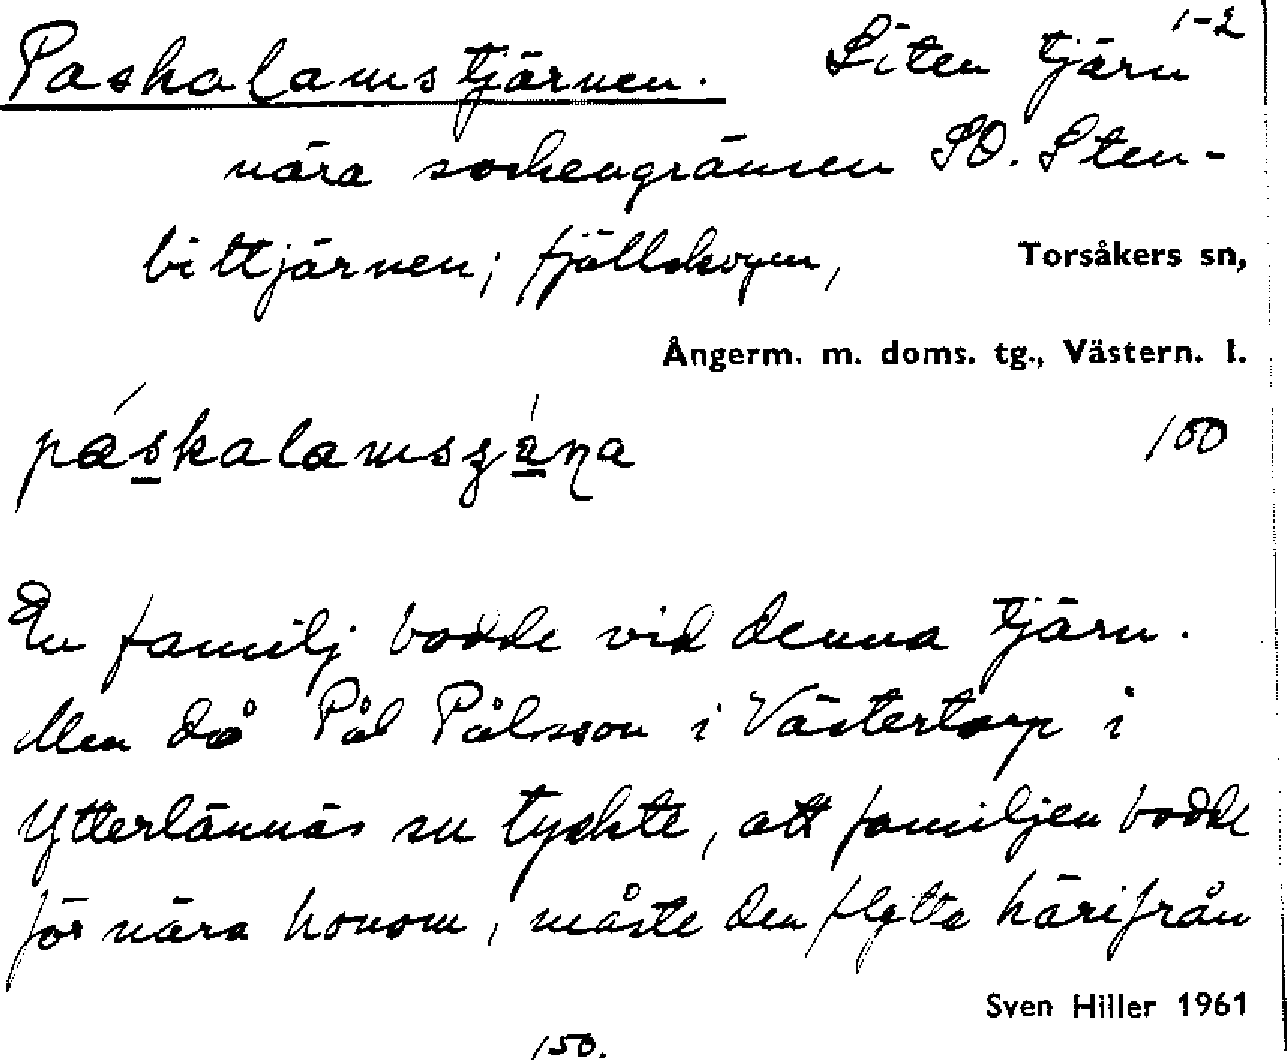 Paskalamstjärnen. Liten tjärn 1-2
nära sockengränsen SO. Sten-
bittjärnen; fjällskogen, Torsåkers sn,
Ångerm. m. doms. tg., Västern. l.
150
En familj bodde vid denna tjärn.
Men då Pål Pålsson i Västertorp i
Ytterlännäs sn tyckte, att familjen bodde
för nära honom, måste den flytta härifrån
Sven Hiller 1961
150.